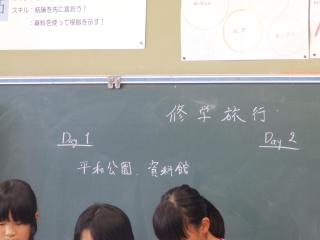 スキル：結論を先に言おう！
：資料を使って根拠を示す！
修学旅行
Day 1
Day 2
平和公園、資料館